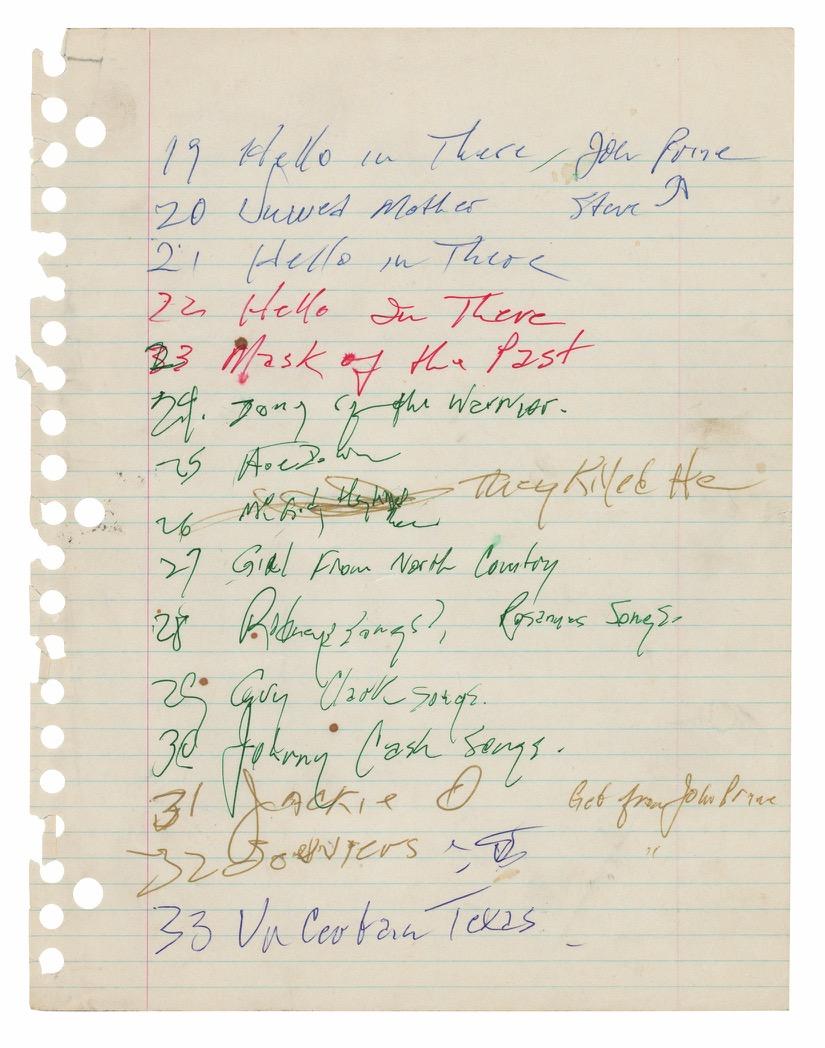 19 Hello in There / John Prine
20 Unwed Mother Steve ↗
21 Hello in There
22 Hello In There
23 Mask of the Past
24. Song of the Warrior.
25 HoeDown
26 They Killed He
27 Girl From North Country
28 Rodneys Songs?, Rosannes Songs.
29 Guy Clark songs.
30 Johnny Cash Songs.
31 Jackie O Get from John Prine
32 "
33 Uncertain Texas